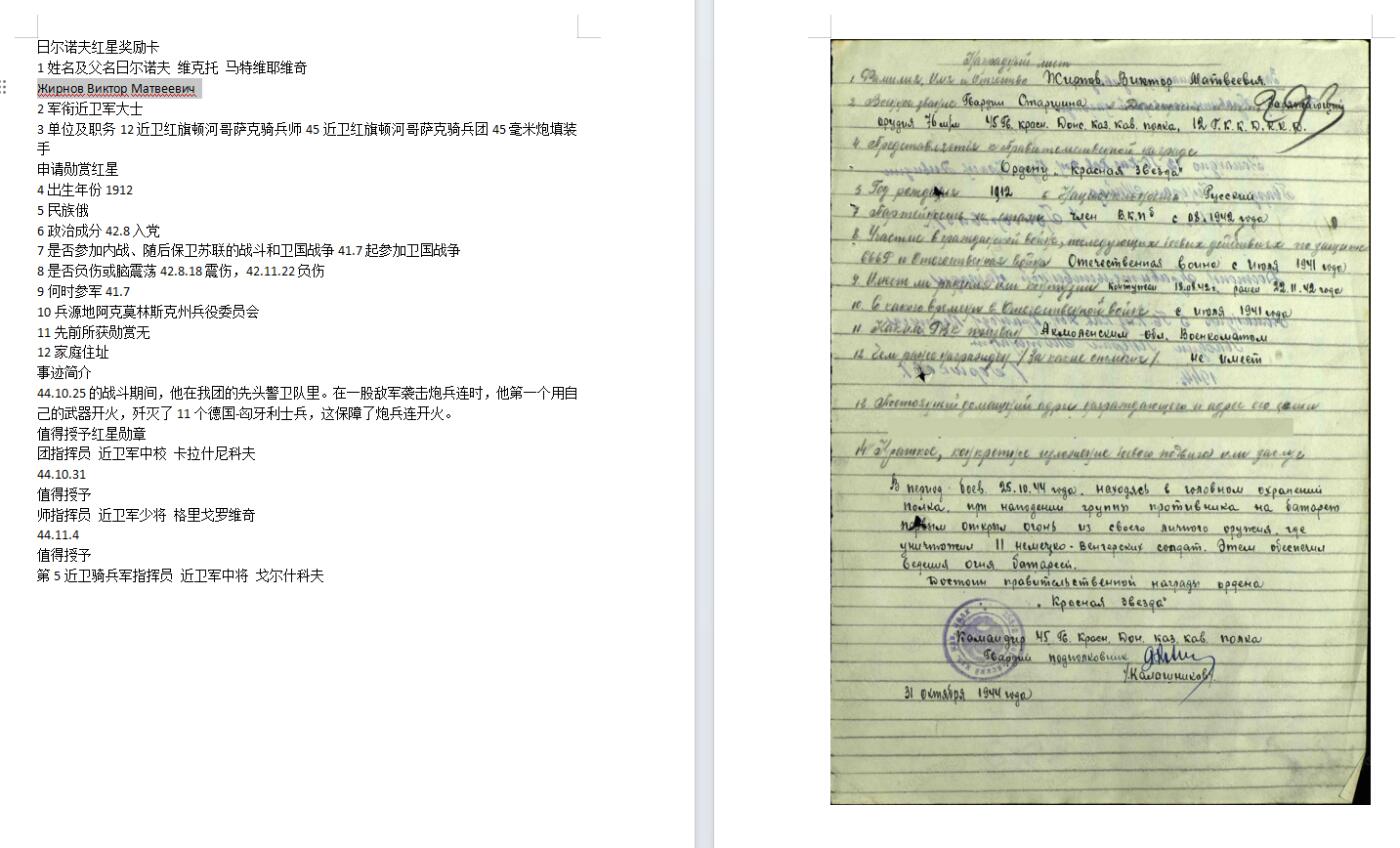 日尔诺夫红星奖励卡
1 姓名及父名日尔诺夫 维克托 马特维耶维奇
Жирнов Виктор Матвеевич
2 军衔近卫军大士
3 单位及职务 12 近卫红旗顿河哥萨克骑兵师 45 近卫红旗顿河哥萨克骑兵团 45 毫米炮填装
手
申请勋赏红星
4 出生年份 1912
5 民族俄
6 政治成分 42.8 入党
7 是否参加内战、随后保卫苏联的战斗和卫国战争 41.7 起参加卫国战争
8 是否负伤或脑震荡 42.8.18 震伤，42.11.22 负伤
9 何时参军 41.7
10 兵源地阿克莫林斯克州兵役委员会
11 先前所获勋赏无
12 家庭住址
事迹简介
44.10.25 的战斗期间，他在我团的先头警卫队里。在一股敌军袭击炮兵连时，他第一个用自
己的武器开火，歼灭了 11 个德国-匈牙利士兵，这保障了炮兵连开火。
值得授予红星勋章
团指挥员 近卫军中校 卡拉什尼科夫
44.10.31
值得授予
师指挥员 近卫军少将 格里戈罗维奇
44.11.4
值得授予
第 5 近卫骑兵军指挥员 近卫军中将 戈尔什科夫
Наградной лист
1. Фамилия, Имя и Отчество Жирнов, Виктор Матвеевич.
2. Воинское звание Гвардии Старшина
орудия 76 м/м 45 Гв. красн. Донс. каз. кав. полка, 12 Г.К.К.Д.К.К.Д.
4. Представляется к правительственной награде
Ордену "Красная звезда"
5. Год рождения 1912 6. Национальность Русский
7. Партийность член В.К.П б с 08.1942 года
8. Участие в гражданской войне, последующих боевых действиях по защите
СССР и Отечественной войне Отечественная война с июля 1941 года
9. Имеет ли ранения или контузии контужен 18.08.42г. ранен 22.11.42 года
10. С какого времени в Отечественной войне с июля 1941 года
11. Каким РВК призван Акмоленским обл. Военкоматом
12. Чем ранее награжден /за какие отличия/. не имеет
13. Постоянный домашний адрес награждающего и адрес его семьи
14. Краткое, конкретное изложение боевого подвига или заслуг
В период боев 25.10.44 года. находясь в головном охранений
полка. при нападении группы противника на батарею
первым открыл огонь из своего личного оружия, где
уничтожил 11 немецко-венгерских солдат. Этем обеспечил
ведения огня батареей.
Достоин правительственной награды ордена
"Красная звезда"
Командир 45 Гв. Красн. Дон. каз. кав. полка
Гвардии подполковник
/Калашников/
31 октября 1944 года